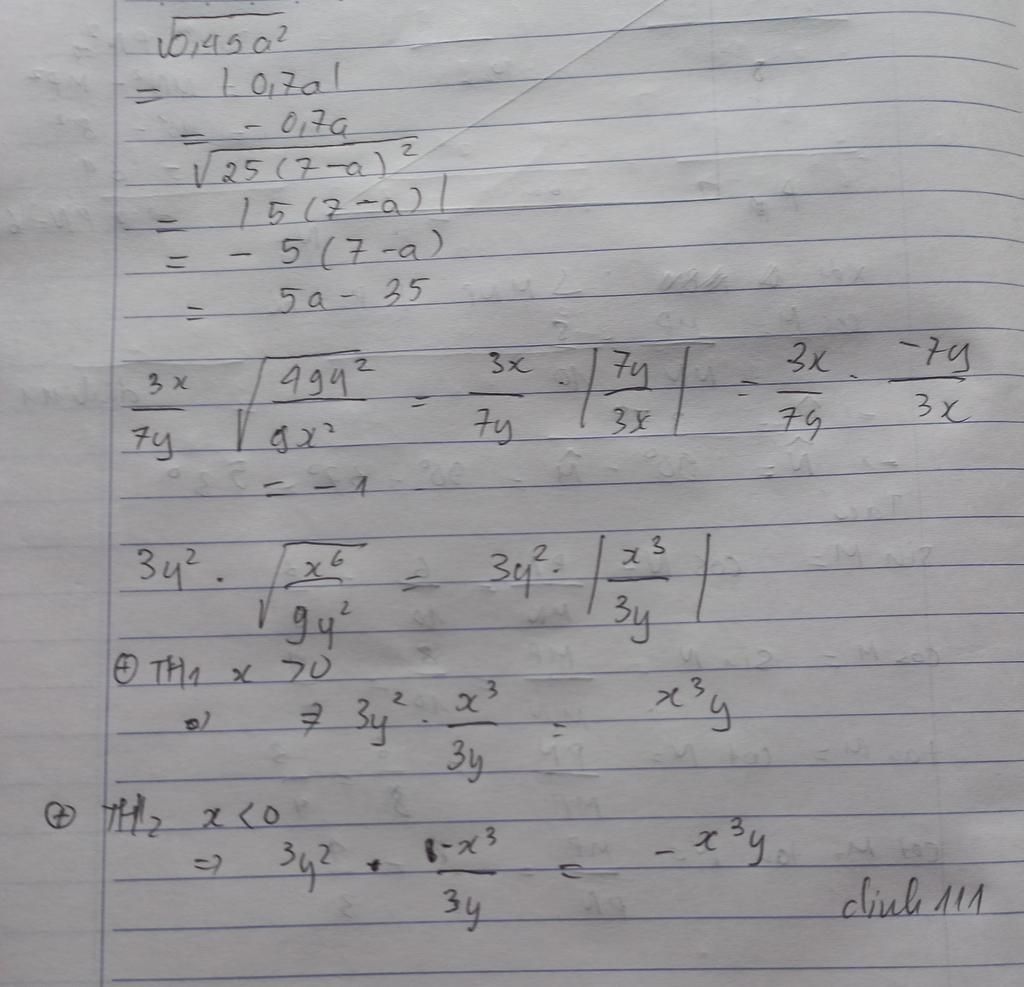 √0,49a²
= |0,7a|
= - 0,7a
√25(7-a)²
= |5(7-a)|
= - 5(7-a)
= 5a - 35
3x/7y √(49y²/9x²) = 3x/7y . |7y/3x| = 3x/7y . -7y/3x
= -1
3y² . √(x⁶/9y²) = 3y² . |x³/3y|
⊕ TH1 x >0
=> 3y² . x³/3y = x³y
⊕ TH2 x <0
=> 3y² . -x³/3y = - x³y
dinh 111